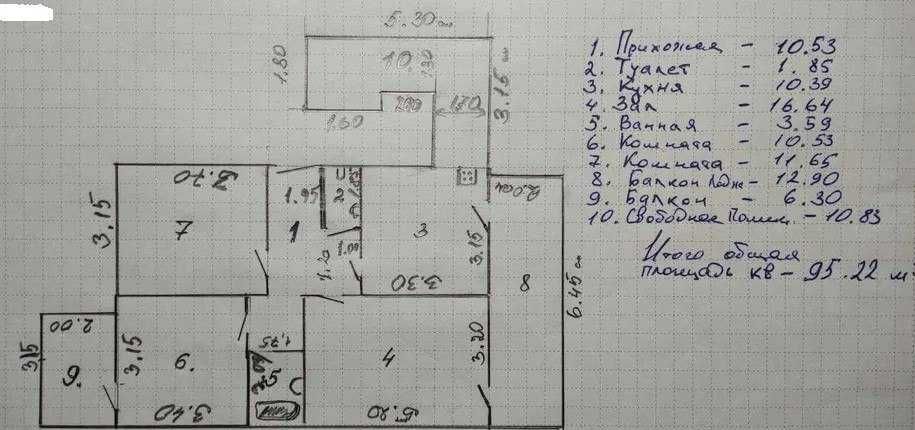 5.30 см
1. Прихожая - 10.53
2. Туалет - 1.85
3. Кухня - 10.39
4. Зал - 16.64
5. Ванная - 3.59
6. Комната - 10.53
7. Комната - 11.65
8. Балкон Лодж - 12.90
9. Балкон - 6.30
10. Свободное Помещ. - 10.83
Итого общая
площадь кв - 95.22 м²
1.80
10
1.30
3.15 см
1.90
1.70
3.70
1.95
2
2.00
3.15
7
1
3
3.15
1.20
3.30
8
6.45 см
2.00
1,75
3.15
3.15
3.20
9.
6.
5
4
3.40
5.20